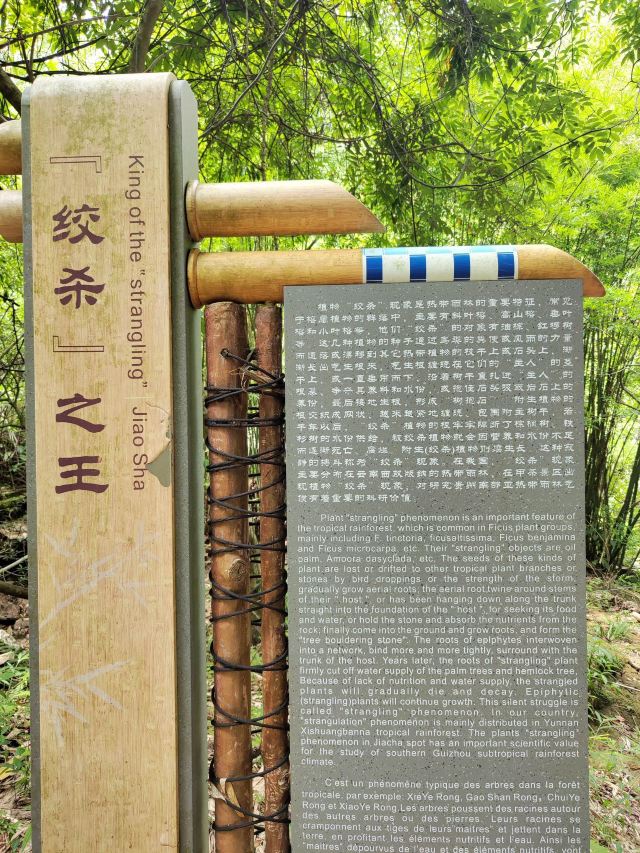 『绞杀』之王
King of the "strangling" Jiao Sha
植物“绞杀”现象是热带雨林的重要特征，常见
于榕属植物的群落中，主要有斜叶榕、高山榕、垂叶
榕和小叶榕等。他们“绞杀”的对象有油棕、红椤树
等。这几种植物的种子通过鸟类的粪便或风雨的力量
而遗落或漂移到其它热带植物的枝干上或石头上，渐
渐长出气生根来，气生根缠绕在它们的“主人”的茎
干上，或一直悬吊而下，沿着树干直扎进“主人”的
根基，争夺其养料和水份，或抱住石头吸收岩石上的
养份，最后接地生根，形成“树抱石”。附生植物的
根交织成网状，越来越紧地缠绕、包围附主树干。若
干年以后，“绞杀”植物的根牢牢隔断了棕榈树、铁
杉树的水份供给，被绞杀植物就会因营养和水份不足
而逐渐死亡、腐烂，附生(绞杀)植物则继续生长。这种寂
静的搏斗称为“绞杀”现象。在我国，“绞杀”现象
主要分布在云南西双版纳的热带雨林，在甲茶景区出
现植物“绞杀”现象，对研究贵州南部亚热带雨林气
候有着重要的科研价值。
Plant "strangling" phenomenon is an important feature of
the tropical rainforest, which is common in Ficus plant groups,
mainly including F. tinctoria, ficusaltissima, Ficus benjamina
and Ficus microcarpa, etc. Their "strangling" objects are oil
palm, Amoora dasyclada, etc. The seeds of these kinds of
plant are lost or drifted to other tropical plant branches or
stones by bird droppings or the strength of the storm,
gradually grow aerial roots; the aerial root twine around stems
of their " host ", or has been hanging down along the trunk
straight into the foundation of the " host ", for seeking its food
and water, or hold the stone and absorb the nutrients from the
rock; finally come into the ground and grow roots, and form the
"tree bouldering stone". The roots of epiphytes interwoven
into a network, bind more and more tightly, surround with the
trunk of the host. Years later, the roots of "strangling" plant
firmly cut off water supply of the palm trees and hemlock tree.
Because of lack of nutrition and water supply, the strangled
plants will gradually die and decay. Epiphytic
(strangling)plants will continue growth. This silent struggle is
called "strangling" phenomenon. In our country,
"strangulation" phenomenon is mainly distributed in Yunnan
Xishuangbanna tropical rainforest. The plants "strangling"
phenomenon in Jiacha spot has an important scientific value
for the study of southern Guizhou subtropical rainforest
climate.
C'est un phénomène typique des arbres dans la forêt
tropicale, par exemple: XieYe Rong, Gao Shan Rong, ChuiYe
Rong et XiaoYe Rong.Les arbres poussent des racines autour
des autres arbres ou des pierres. Leurs racines se
cramponnent aux tiges de leurs"maîtres" et jettent dans la
terre, en profitant les éléments nutritifs et l'eau. Ainsi les
"maîtres" dépourvus de l'eau et des éléments nutritifs, vont